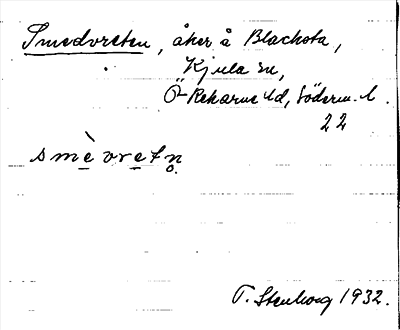 Smedvreten, åker å Blacksta,
Kjula sn,
Ö Rekarne hd, Söderm. l.
22
smèvretn̥
T. Stenborg 1932.